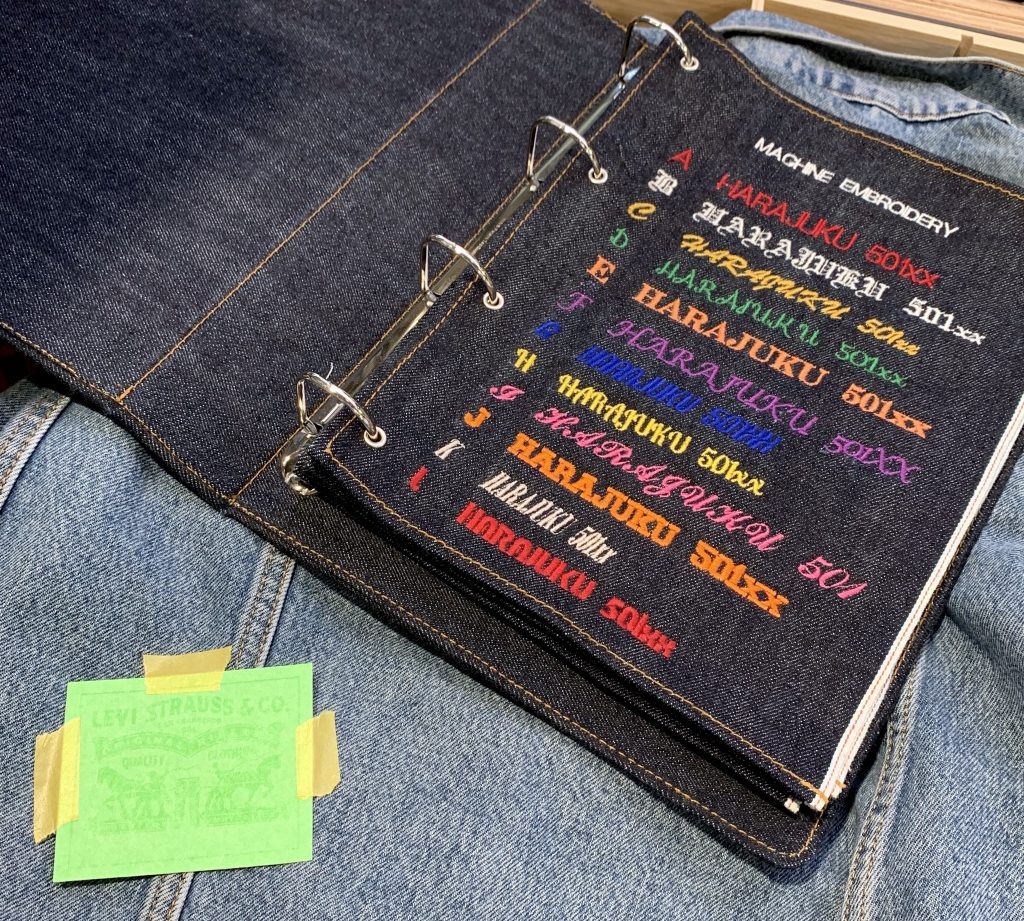 MACHINE EMBROIDERY
A HARAJUKU 501XX
B HARAJUKU 501xx
C HARAJUKU 501xx
D HARAJUKU 501xx
E HARAJUKU 501xx
F HARAJUKU 501XX
G HARAJUKU 501XX
H HARAJUKU 501xx
I HARAJUKU 501
J HARAJUKU 501xx
K HARAJUKU 501xx
L HARAJUKU 501xx
LEVI STRAUSS & CO.
QUALITY CLOTHING